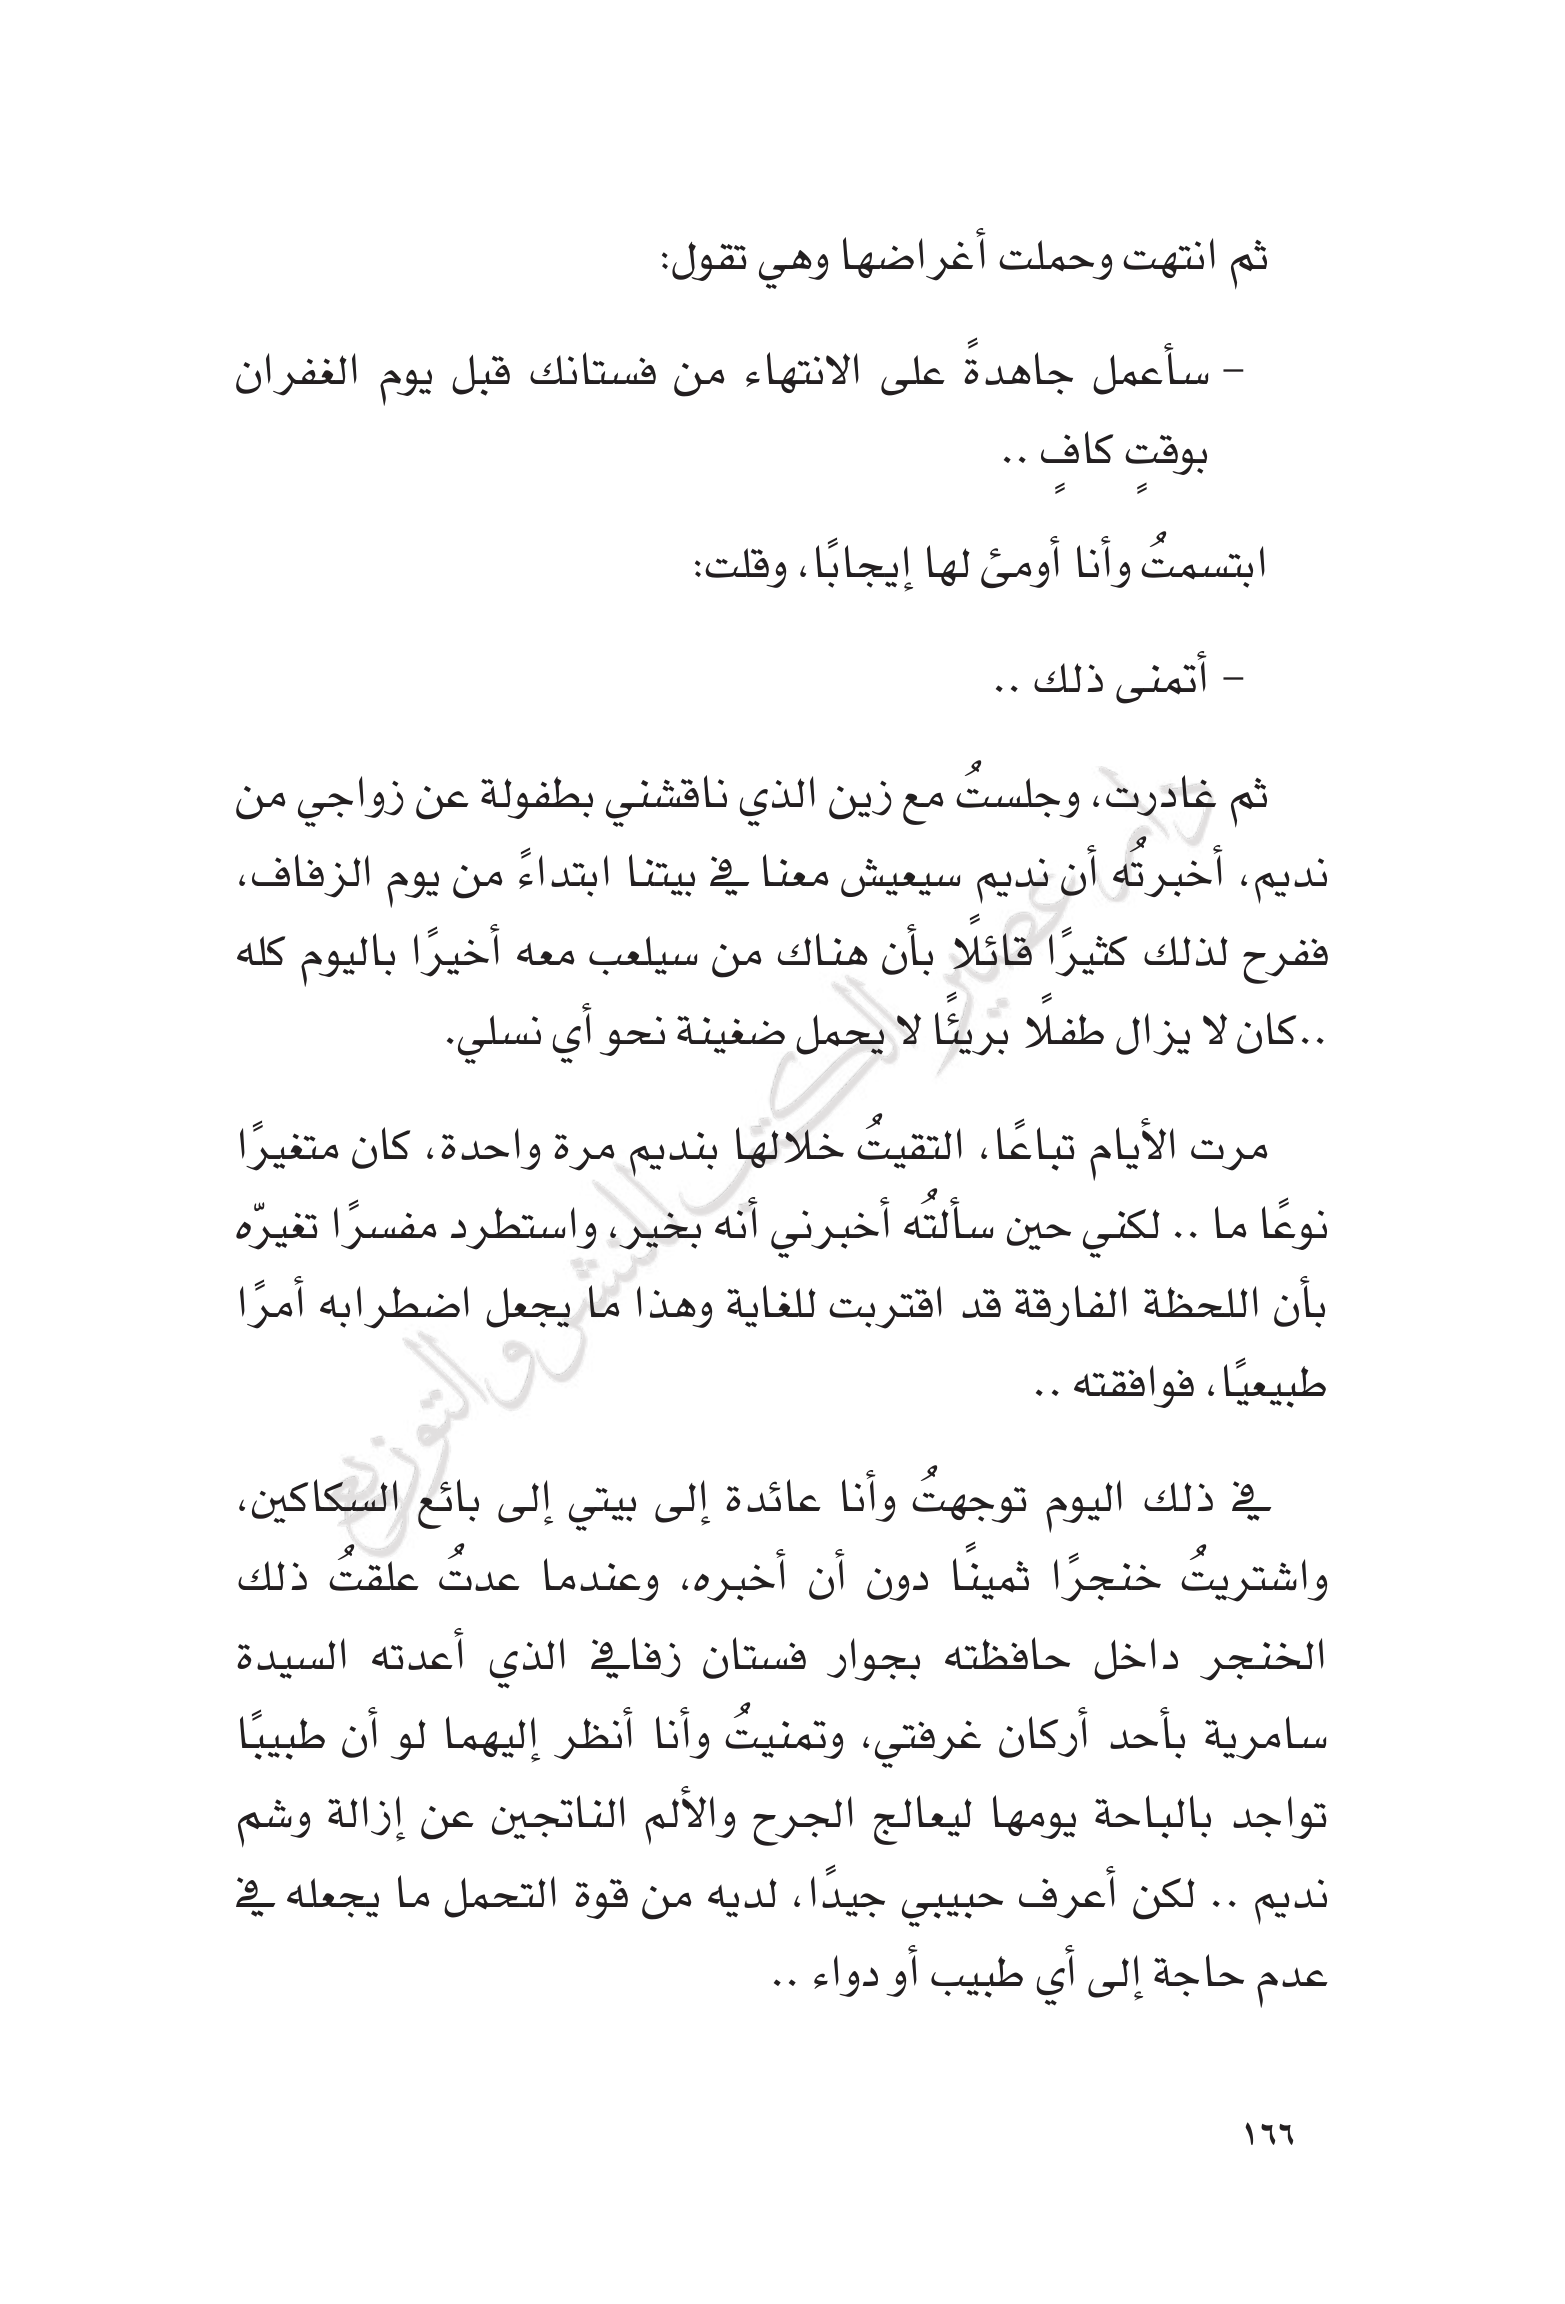 ثم انتهت وحملت أغراضها وهي تقول:
– سأعمل جاهدةً على الانتهاء من فستانك قبل يوم الغفران
بوقتٍ كافٍ ..
ابتسمتُ وأنا أومئ لها إيجابًا، وقلت:
– أتمنى ذلك ..
ثم غادرت، وجلستُ مع زين الذي ناقشني بطفولة عن زواجي من
نديم، أخبرتُه أن نديم سيعيش معنا في بيتنا ابتداءً من يوم الزفاف،
ففرح لذلك كثيرًا قائلًا بأن هناك من سيلعب معه أخيرًا باليوم كله
..كان لا يزال طفلًا بريئًا لا يحمل ضغينة نحو أي نسلي.
مرت الأيام تباعًا، التقيتُ خلالها بنديم مرة واحدة، كان متغيرًا
نوعًا ما .. لكني حين سألتُه أخبرني أنه بخير، واستطرد مفسرًا تغيرّه
بأن اللحظة الفارقة قد اقتربت للغاية وهذا ما يجعل اضطرابه أمرًا
طبيعيًا، فوافقته ..
في ذلك اليوم توجهتُ وأنا عائدة إلى بيتي إلى بائع السكاكين،
واشتريتُ خنجرًا ثمينًا دون أن أخبره، وعندما عدتُ علقتُ ذلك
الخنجر داخل حافظته بجوار فستان زفافي الذي أعدته السيدة
سامرية بأحد أركان غرفتي، وتمنيتُ وأنا أنظر إليهما لو أن طبيبًا
تواجد بالباحة يومها ليعالج الجرح والألم الناتجين عن إزالة وشم
نديم .. لكن أعرف حبيبي جيدًا، لديه من قوة التحمل ما يجعله في
عدم حاجة إلى أي طبيب أو دواء ..
١٦٦
دار عصير الكتب للنشر والتوزيع